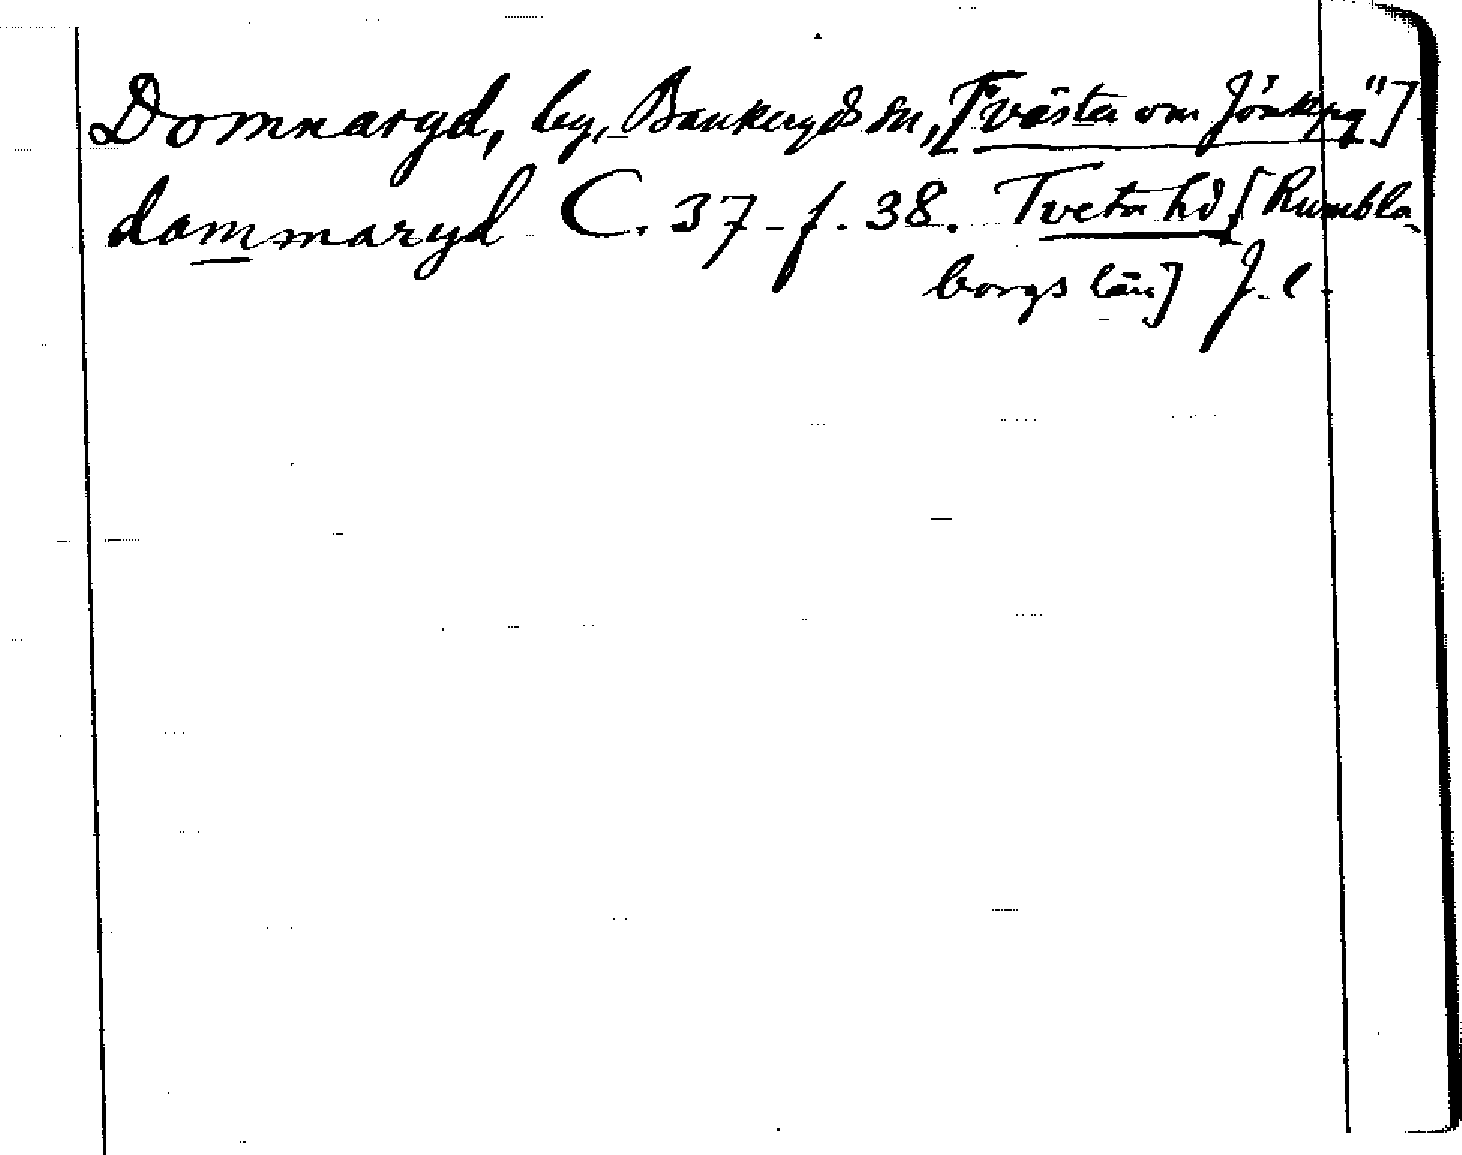 Domnaryd, by, Bankeryds sn, ["västa om Jönkpg"]
dammaryd C. 37 f. 38. Tveta hd [Rumbla
borgs län] J. l.